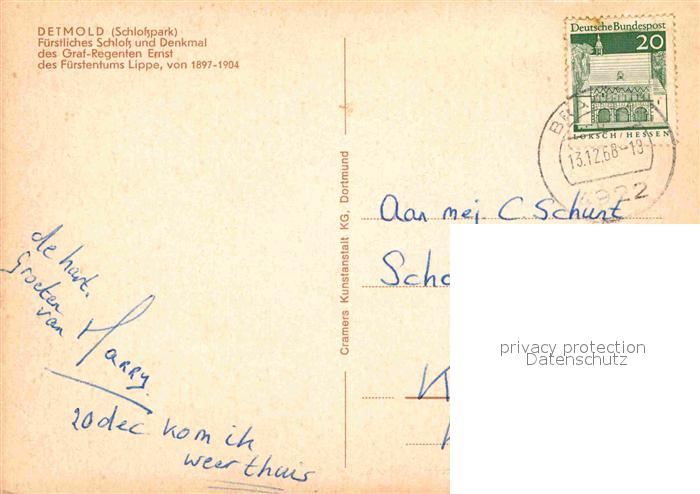 DETMOLD (Schloßpark)
Fürstliches Schloß und Denkmal
des Graf-Regenten Ernst
des Fürstentums Lippe, von 1897-1904
Deutsche Bundespost
20
LORSCH / HESSEN
13.12.68-19
4922
Cramers Kunstanstalt KG, Dortmund
Aan mej C. Schunt
Scho
K
de hart.
Groeten
van
Harry.
20 dec kom ik
weer thuis
privacy protection
Datenschutz